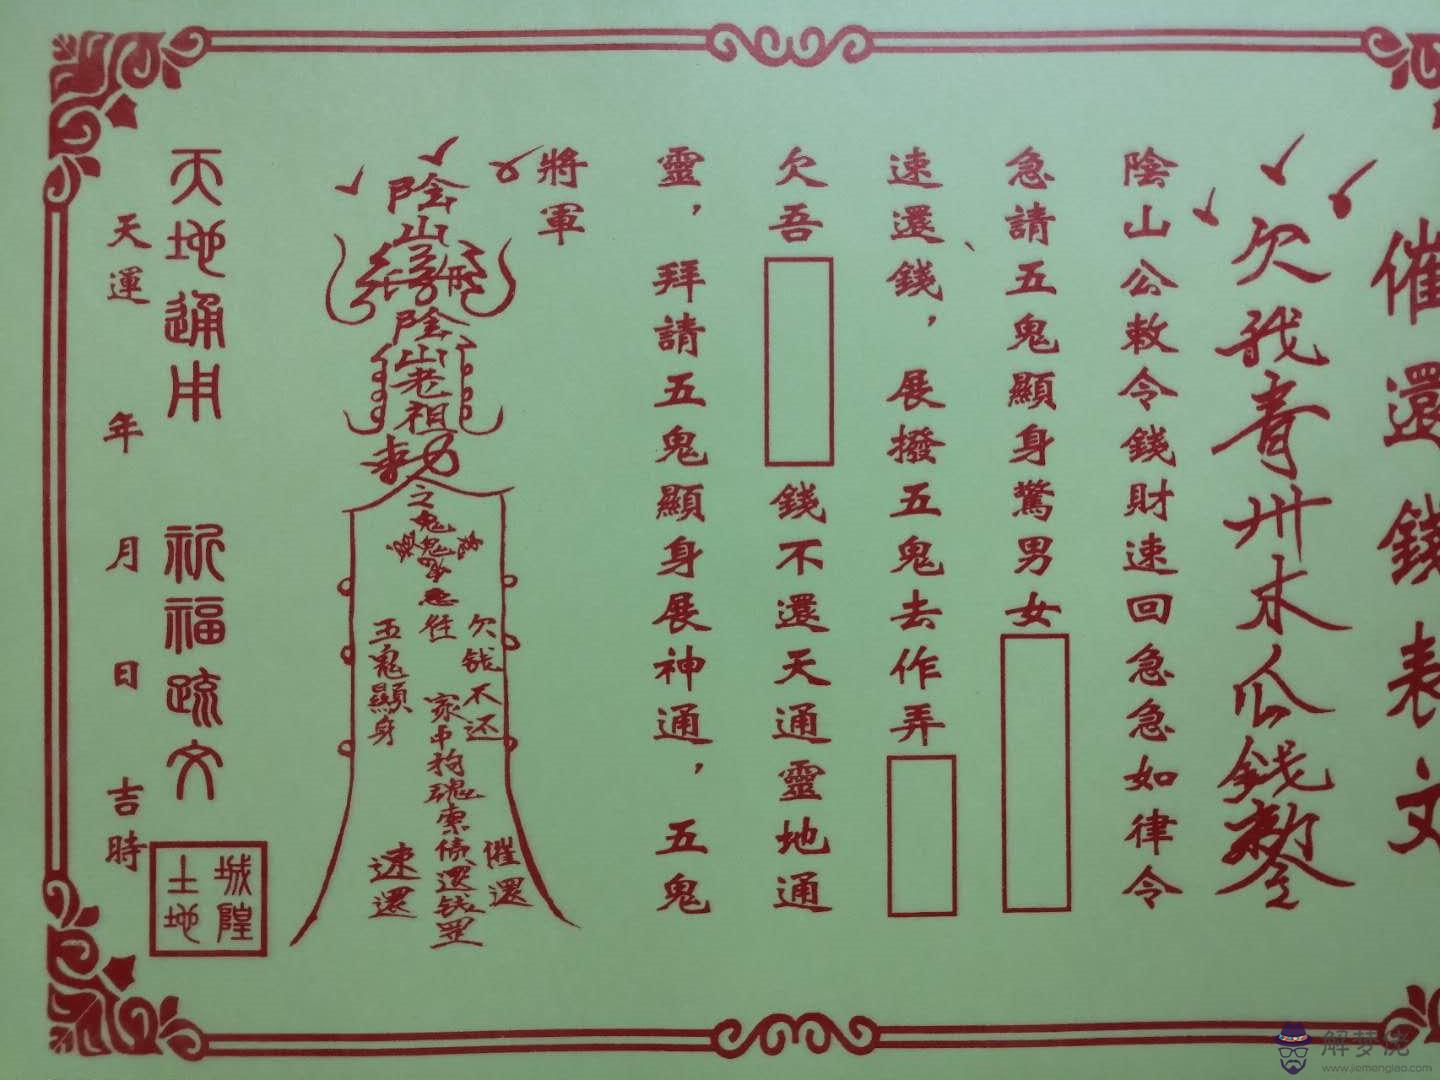 催還錢表文
欠我青州木瓜錢
陰山公敕令錢財速回急急如律令
急請五鬼顯身驚男女
速還錢，展撥五鬼去作弄
欠吾 錢不還天通靈地通
靈，拜請五鬼顯身展神通，五鬼
將軍
陰山
陰山老祖
敕
之
欠钱不还
催還
家中拘魂索债還钱罡
五鬼顯身
速還
天地通用 祈福疏文
城隍
土地
天運 年 月 日 吉時
解梦佬
www.jiemenglao.com